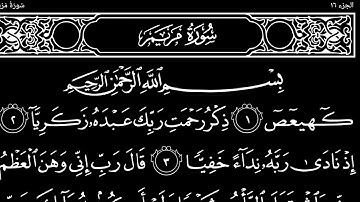 الجزء ١٦ سورة مر
سُورَةُ مَرْيَمَ
بِسْمِ ٱللَّهِ ٱلرَّحْمَٰنِ ٱلرَّحِيمِ
كٓهيعٓصٓ ١ ذِكْرُ رَحْمَتِ رَبِّكَ عَبْدَهُۥ زَكَرِيَّآ ٢
إِذْ نَادَىٰ رَبَّهُۥ نِدَآءً خَفِيًّا ٣ قَالَ رَبِّ إِنِّى وَهَنَ ٱلْعَظْمُ